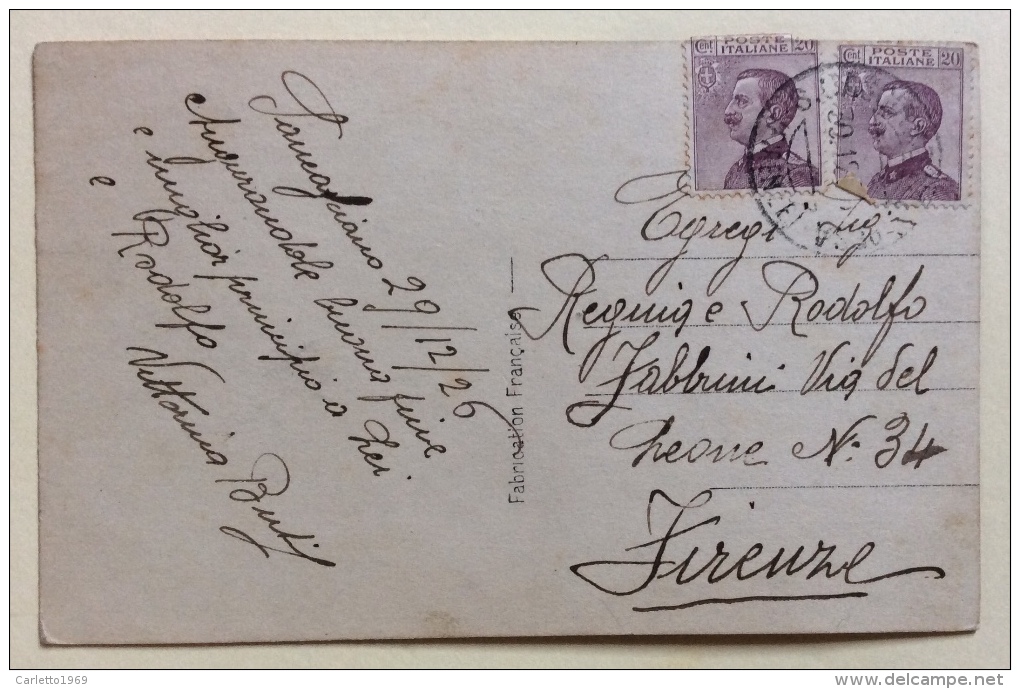 29/12/26
Augurandole buona fine
e miglior principio a Lei
e Rodolfo
Vittoria Buti
Fabrication Française
Cent POSTE 20
ITALIANE
Cent POSTE 20
ITALIANE
Egregi Sig.
Regina e Rodolfo
Fabbrini Via del
Leone N: 34
Firenze
Carletto1969